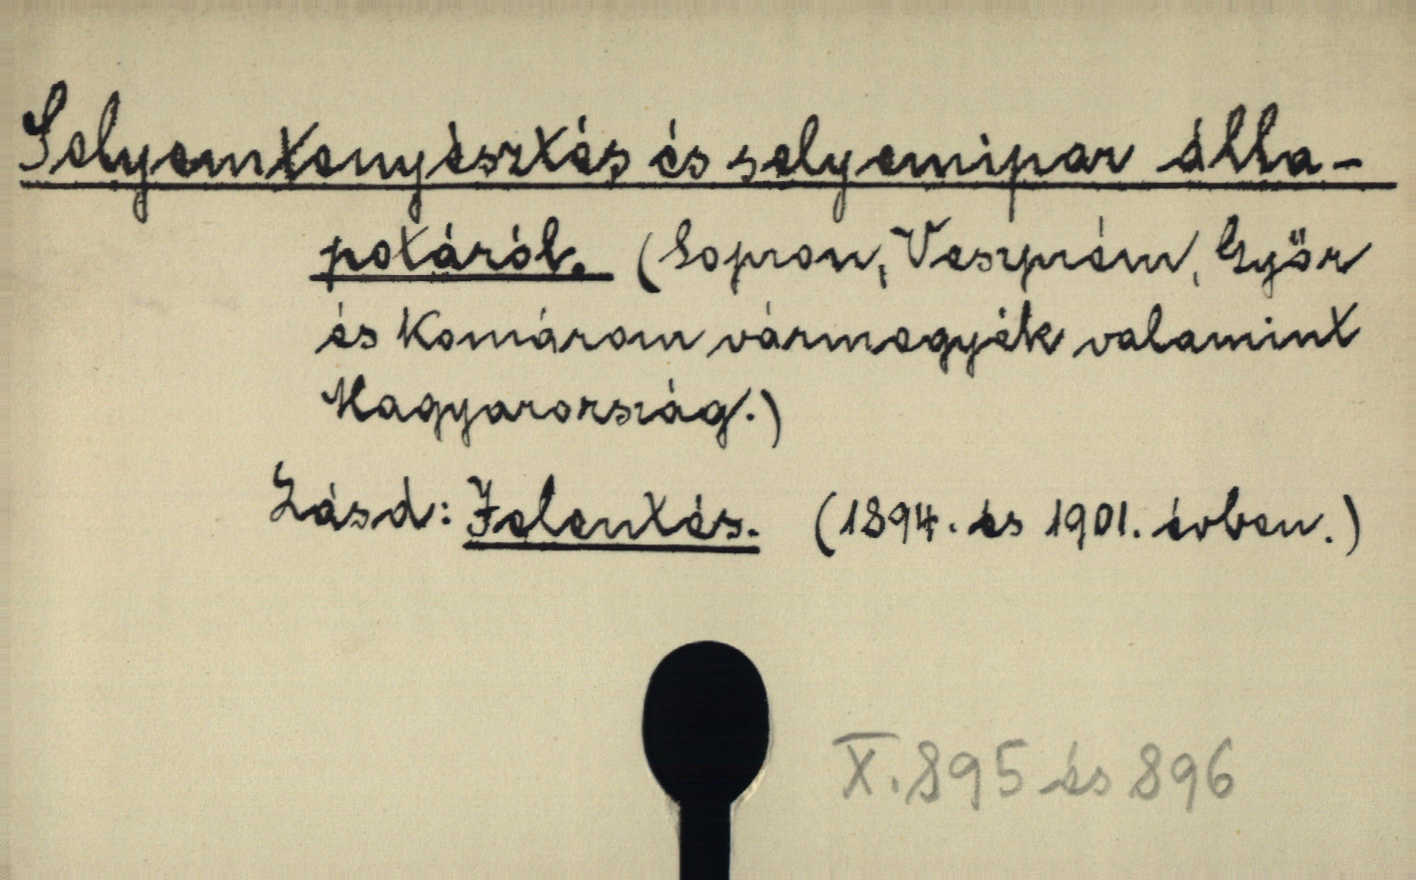 Selyemtenyésztés és selyemipar álla-
potáról. (Sopron, Veszprém, Győr
és Komárom vármegyék valamint
Magyarország.)
Lásd: Jelentés. (1894. és 1901. évben.)
X. 895 és 896